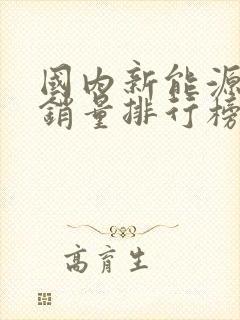 國内新能源
銷量排行榜
高育生